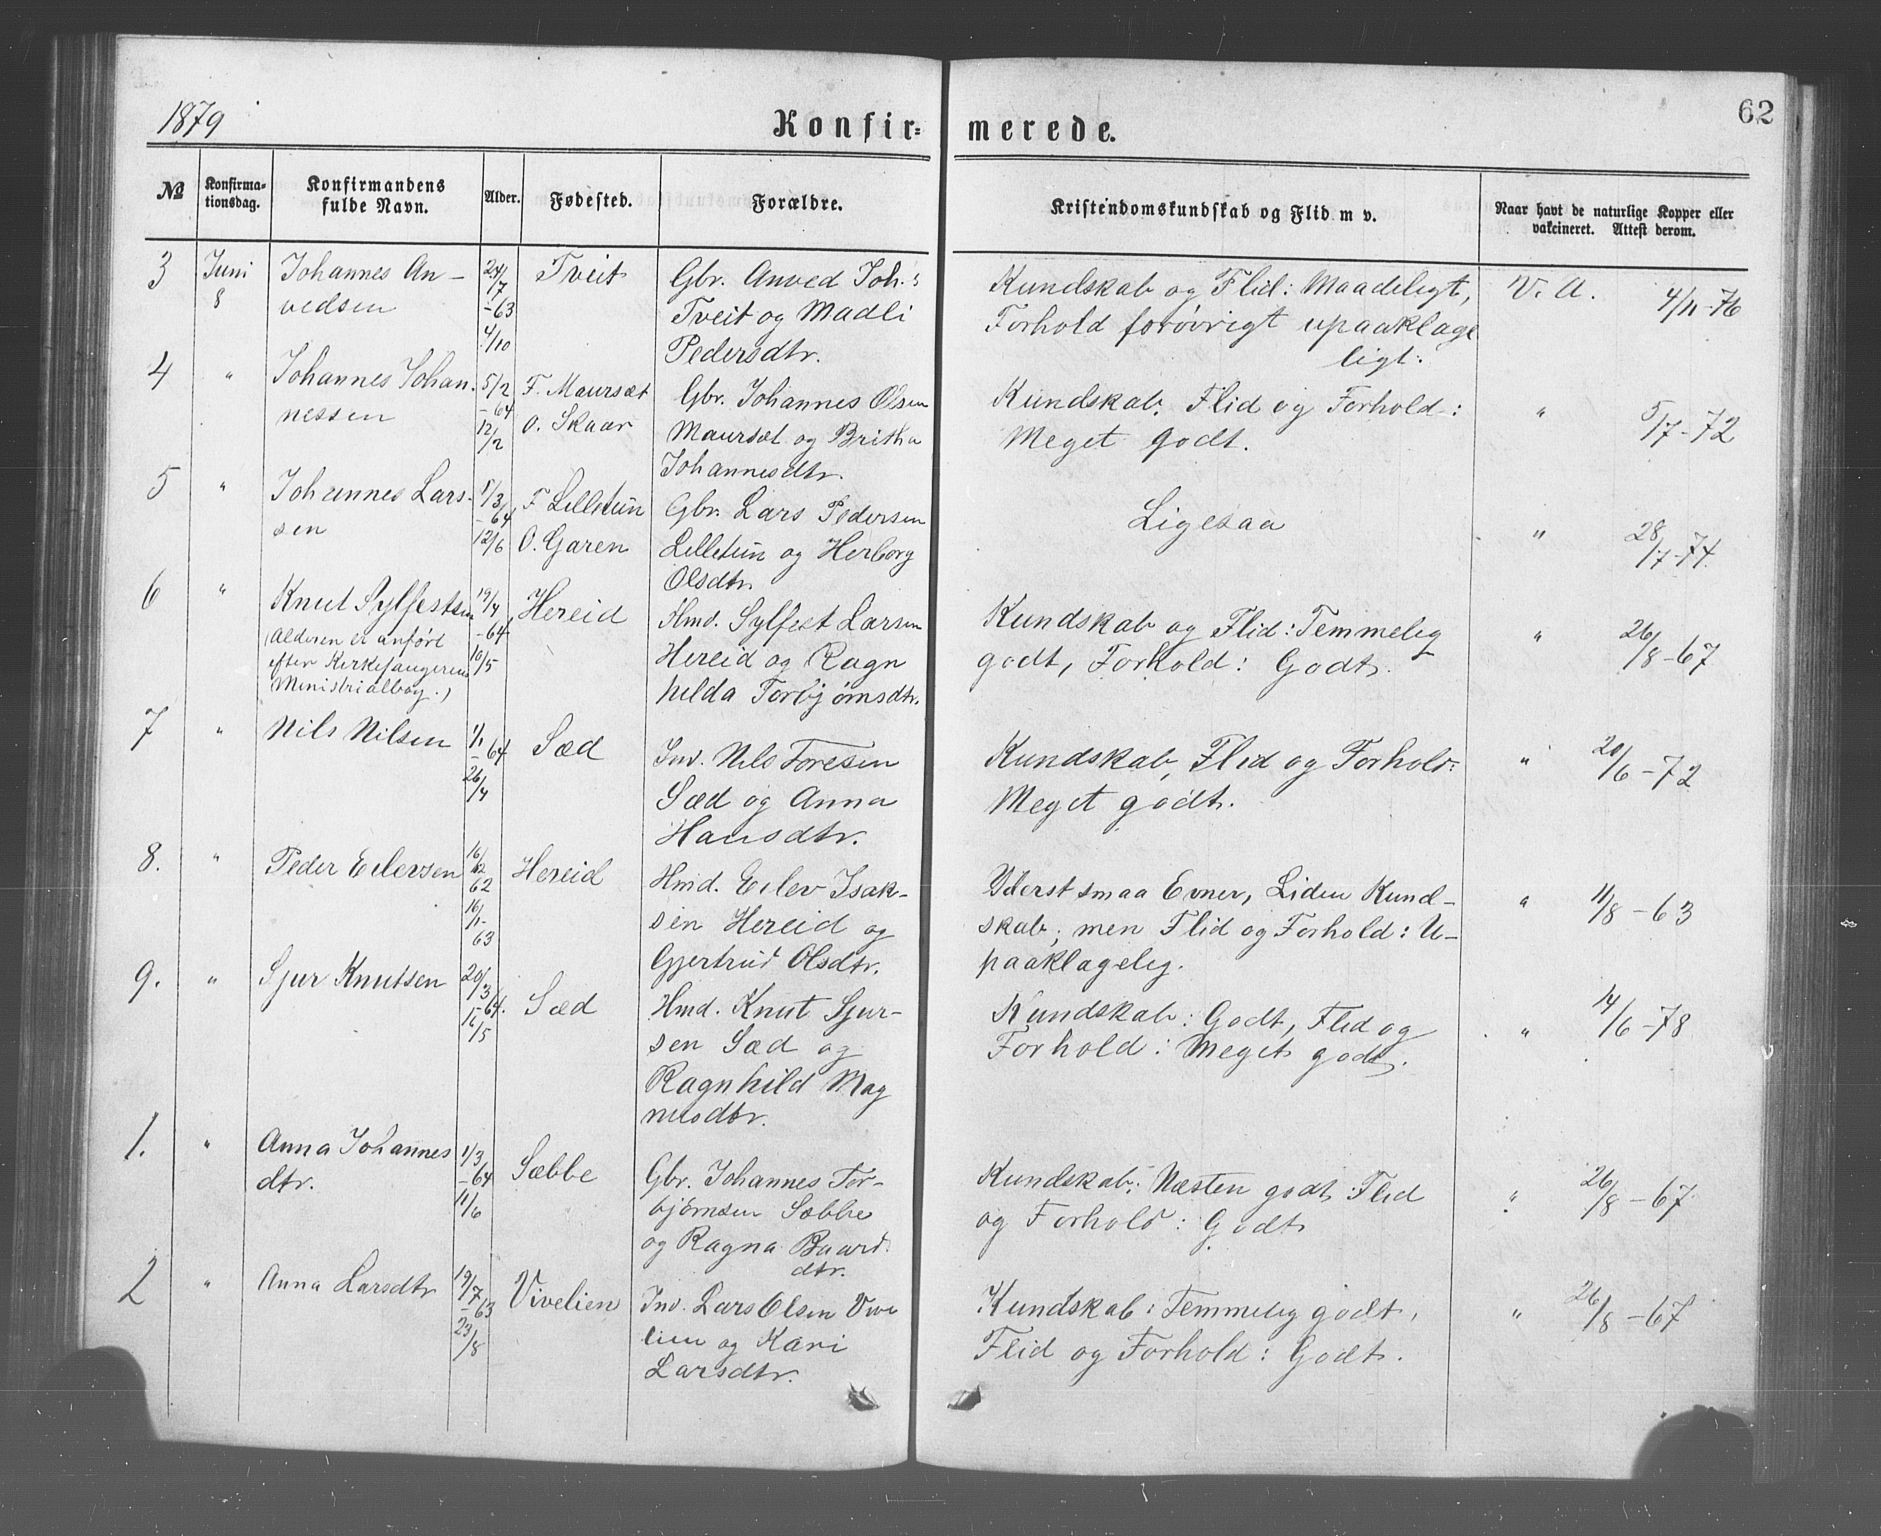 1879
Konfir= merede.
62
№
Konfirma-
tionsdag.
Konfirmandens
fulde Navn.
Alder.
Fødested.
Forældre.
Kristendomskundskab og Flid m v.
Naar havt de naturlige Kopper eller
vakcineret. Attest derom.
3 Juni 8
Johannes An-
vedsen
24/7
-63
4/10
Tveit
Gbr. Anved Joh.:
Tveit og Madli
Pedersdtr.
Kundskab og Flid: Maadeligt,
Forhold forøvrigt upaaklage
ligt.
V. A. 4/11-76
4 "
Johannes Johan-
nessen
5/2
-64
12/2
F. Maursæt
O. Skaar
Gbr. Johannes Olsen
Maursæt og Britha
Johannesdtr.
Kundskab, Flid og Forhold:
Meget godt.
" 5/7-72
5 "
Johannes Lars-
sen
1/3
-64
12/6
F Lilletun
O. Garen
Gbr. Lars Pedersen
Lilletun og Herborg
Olsdtr.
Ligesaa
" 28/7-74
6 "
Knut Sylfestsen
(Alderen er anført
efter Kirkesangerens
Ministrialbog.)
19/4
-64
10/5
Hereid
Hmd. Sylfest Larsen
Hereid og Ragn
hilda Torbjørnsdtr.
Kundskab og Flid: Temmelig
godt, Forhold: Godt.
" 26/8-67
7 "
Nils Nilsen
1/1
-64
26/4
Sæd
Ind. Nils Toresen
Sæd og Anna
Hansdtr.
Kundskab, Flid og Forhold:
Meget godt.
" 20/6-72
8. "
Peder Eilevsen
16/12
62
16/1-
63
Hereid
Hmd. Eilev Isak-
sen Hereid og
Gjertrud Olsdtr.
Yderst smaa Evner, Liden Kund-
skab, men Flid og Forhold: U-
paaklagelig.
" 11/8-63
9. "
Sjur Knutsen
20/3
-64.
16/5
Sæd
Hmd. Knut Sjur-
sen Sæd og
Ragnhild Mag
nusdtr.
Kundskab: Godt, Flid og
Forhold: Meget godt.
" 14/6-78
1. "
Anna Johannes
dtr.
1/3
-64
11/6
Sæbbe
Gbr. Johannes Tor-
bjørnsen Sæbbe
og Ragna Baard
dtr.
Kundskab: Næsten godt Flid
og Forhold: Godt
" 26/8-67
2 "
Anna Larsdtr
19/7
-63
23/8
Vivelien
Ind. Lars Olsen Vive
lien og Kari
Larsdtr.
Kundskab: Temmelig godt,
Flid og Forhold: Godt.
" 26/8-67